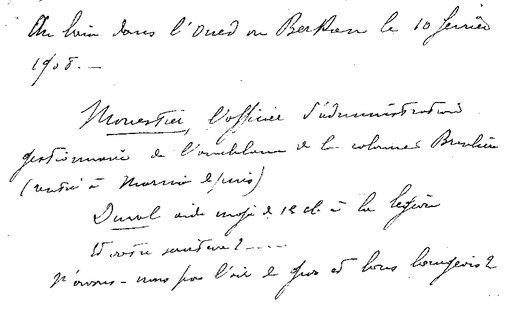 Au bain dans l'Oued au Berkan le 10 février
1908. —
Monestier, l'officier d'administration
gestionnaire de l'ambulance de la colonne
(rentré à Marnia depuis)
Duval aide major de 1e cl. à la légion
Et votre serviteur? .....
N'avons-nous pas l'air de gros et bons bourgeois?